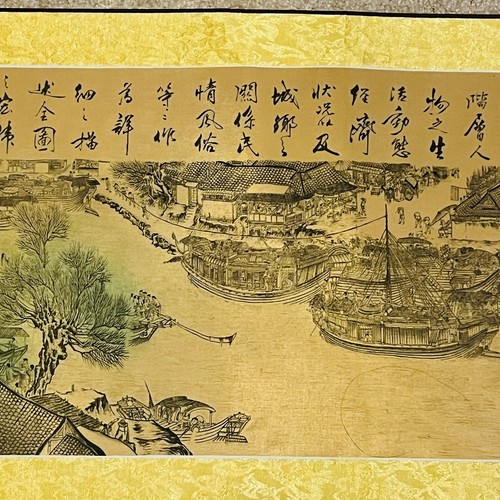 階層人
物之生
活動態
經濟
狀況及
城鄉之
關係民
情風俗
等等作
為詳
細之描
述全圖
宏偉